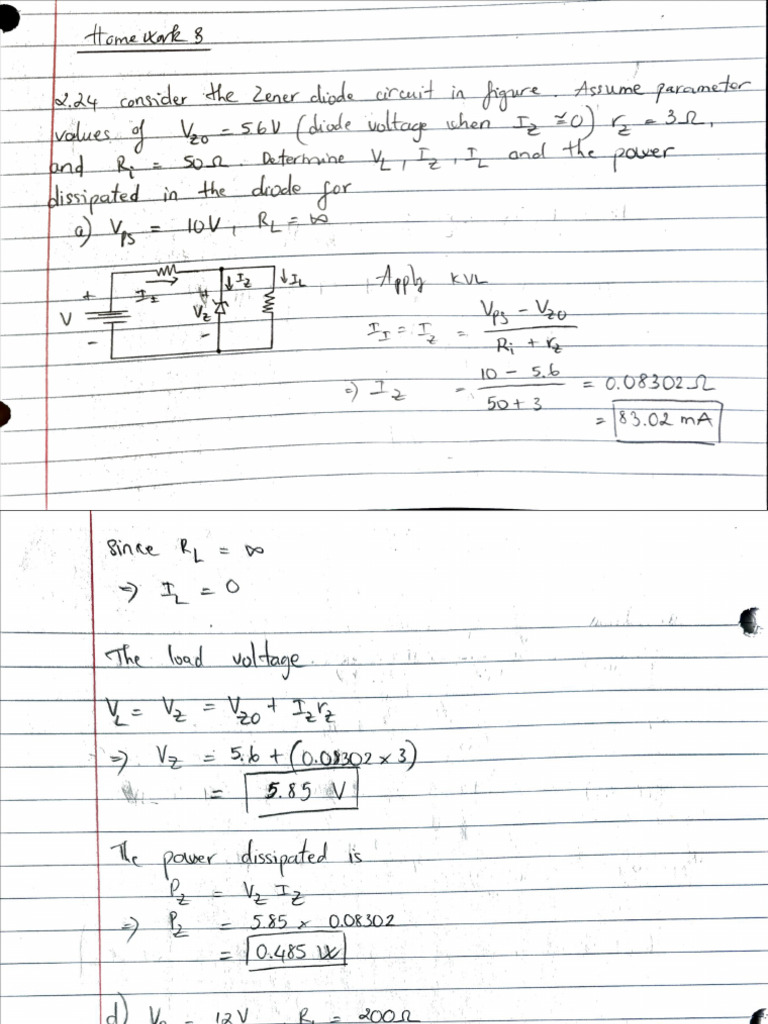 Homework 8
2.24 consider the Zener diode circuit in figure. Assume parameter
values of V_Z0 = 5.6V (diode voltage when I_Z ≅ 0) r_z = 3Ω,
and R_i = 50Ω. Determine V_L, I_Z, I_L and the power
dissipated in the diode for
a) V_PS = 10V, R_L = ∞
+ I_I + V_Z ↓I_Z ↓I_L
V
- -
Apply KVL
I_I = I_Z = (V_PS - V_Z0) / (R_i + r_z)
=> I_Z = (10 - 5.6) / (50 + 3) = 0.08302Ω
= 83.02 mA
Since R_L = ∞
=> I_L = 0
The load voltage
V_L = V_Z = V_Z0 + I_Z r_z
=> V_Z = 5.6 + (0.08302 x 3)
= 5.85 V
The power dissipated is
P_Z = V_Z I_Z
=> P_Z = 5.85 x 0.08302
= 0.485 W
d) 12V 200Ω